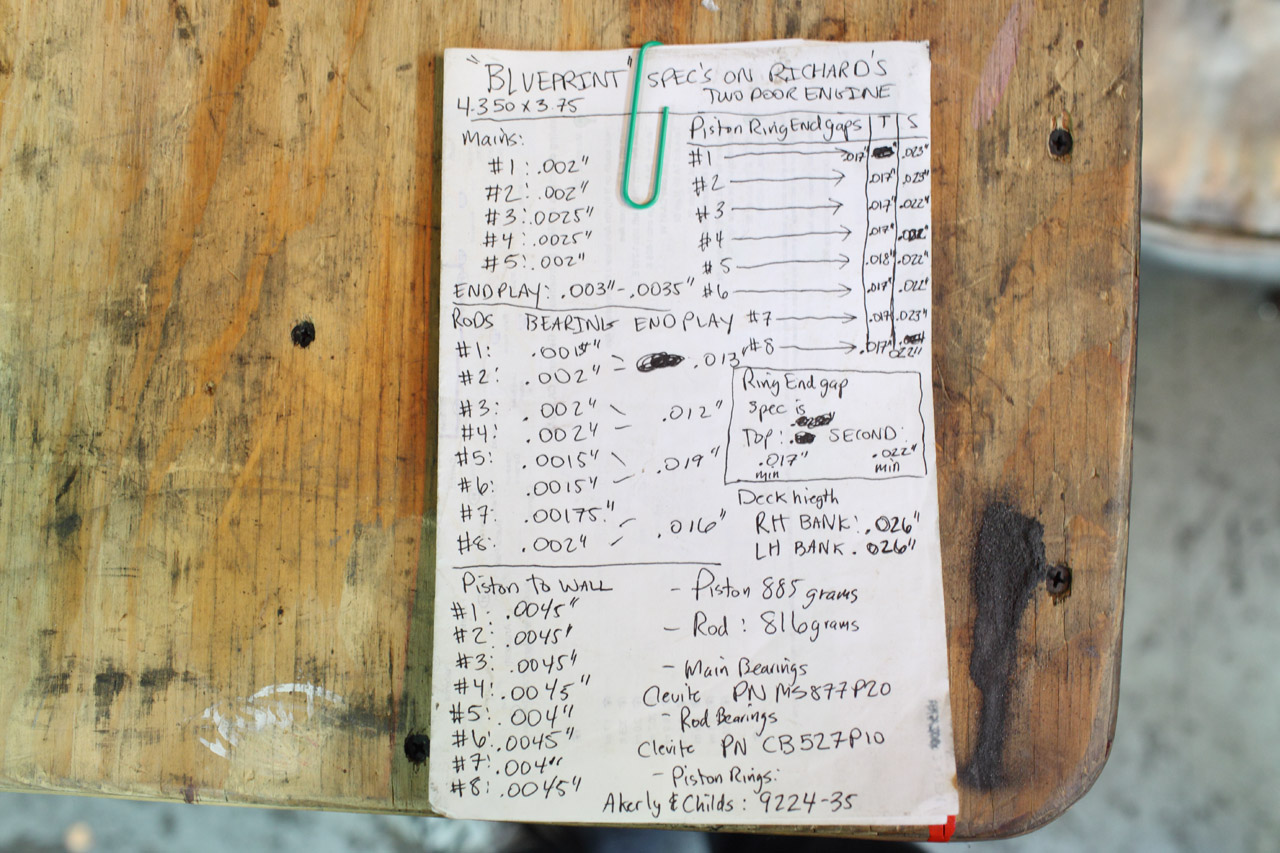 "BLUEPRINT" SPEC'S ON RICHARD'S
TWO DOOR ENGINE
4.350 x 3.75
Mains:
#1: .002"
#2: .002"
#3: .0025"
#4: .0025"
#5: .002"
END PLAY: .003"-.0035"
Piston Ring End gaps T S
#1 .017" .023"
#2 .017" .023"
#3 .017" .022"
#4 .017"
#5 .018" .022"
#6 .017" .022"
#7 .017 .023"
#8 .017" .022"
RODS BEARING END PLAY
#1: .0015"
#2: .002" .013"
#3: .002"
#4: .002" .012"
#5: .0015"
#6: .0015" .019"
#7: .00175"
#8: .002" .016"
Ring End gap
spec is
Top: SECOND:
.017" .022"
min min
Deck hiegth
RH BANK: .026"
LH BANK. .026"
Piston to WALL
#1: .0045"
#2: .0045"
#3: .0045"
#4: .0045"
#5: .004"
#6: .0045"
#7: .004"
#8: .0045"
- Piston 885 grams
- Rod: 816 grams
- Main Bearings
Clevite PN MS877P20
- Rod Bearings
Clevite PN CB527P10
- Piston Rings:
Akerly & Childs: 9224-35